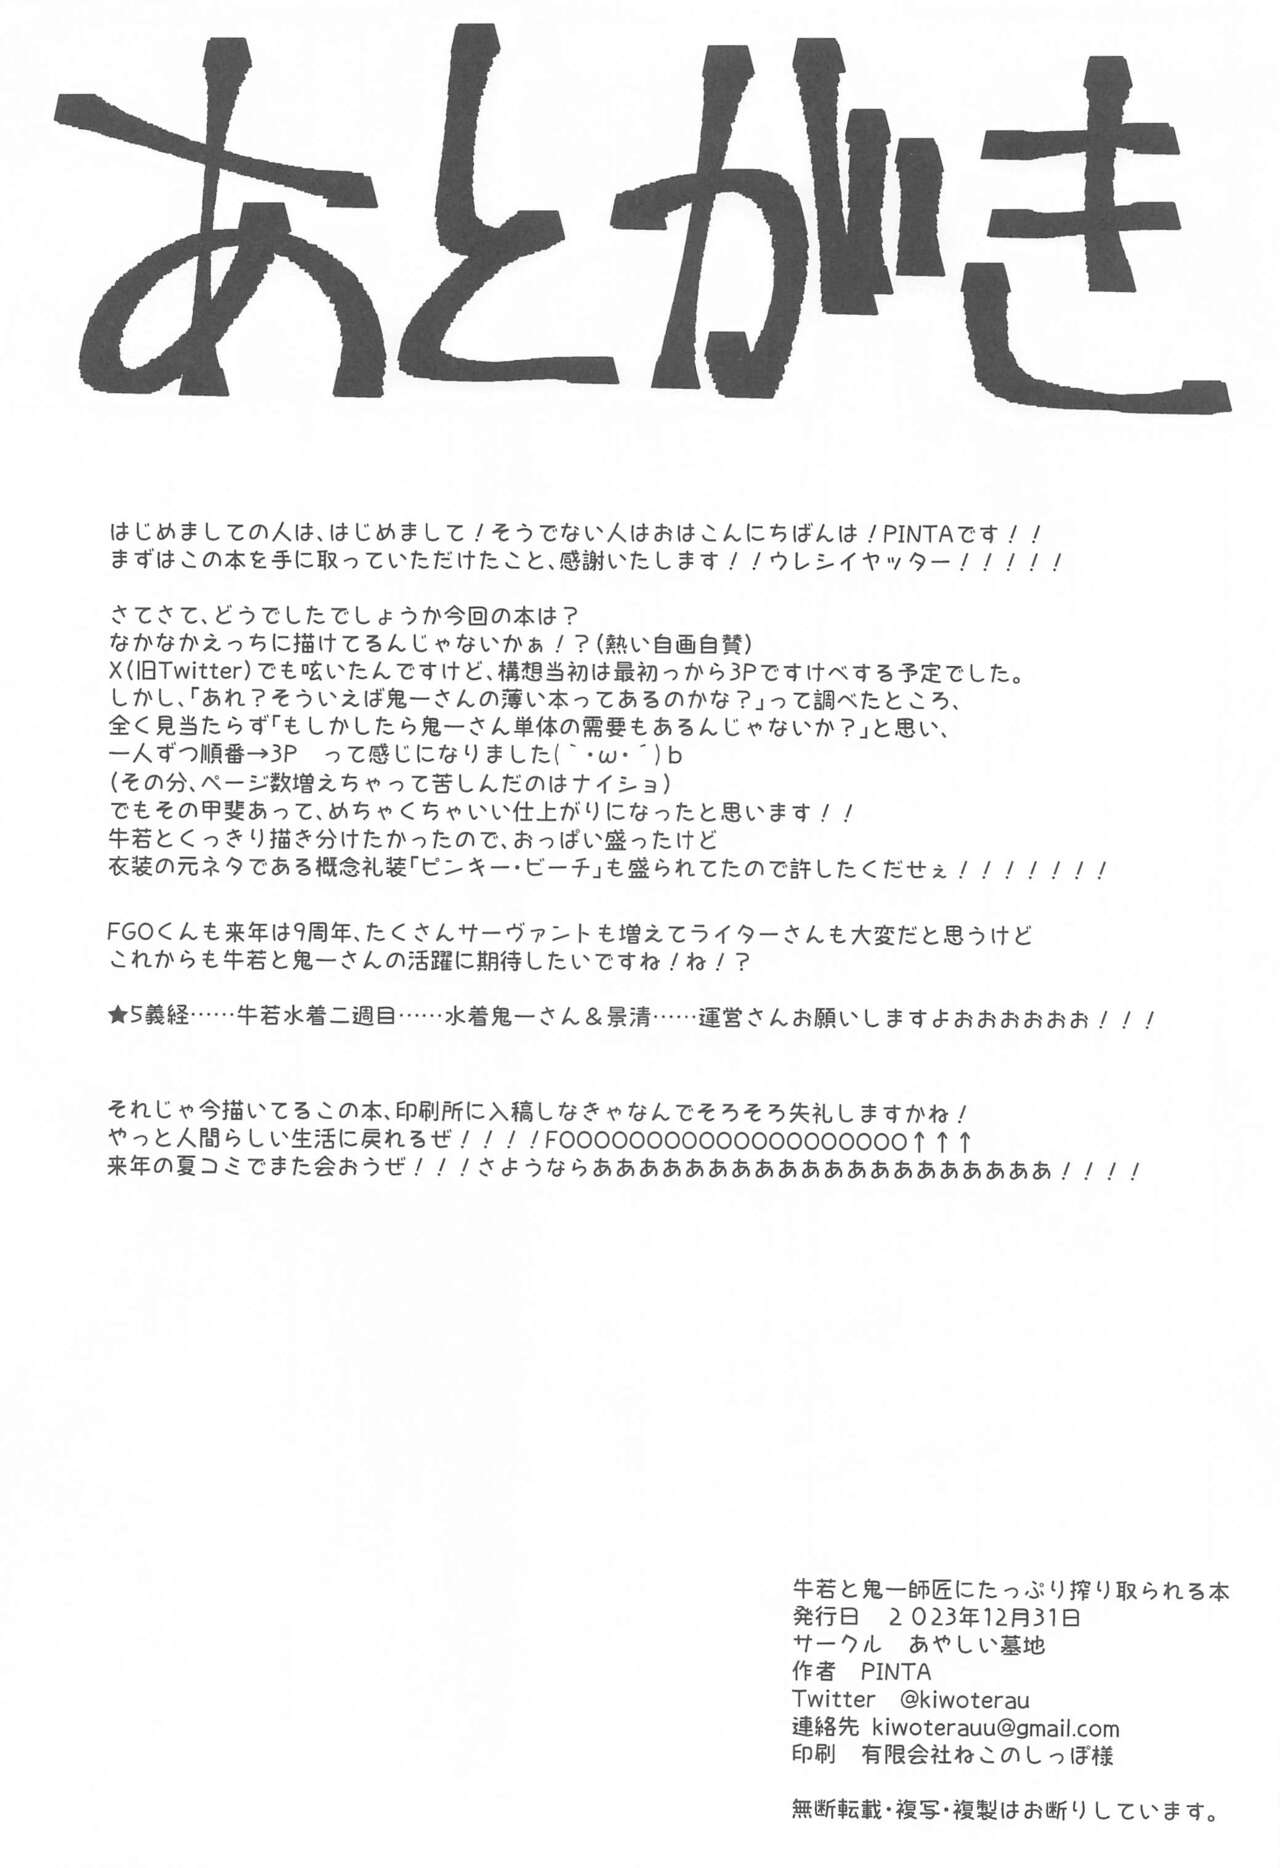 あとがき
はじめましての人は、はじめまして！そうでない人はおはこんにちばんは！PINTAです！！
まずはこの本を手に取っていただけたこと、感謝いたします！！ウレシイヤッター！！！！！
さてさて、どうでしたでしょうか今回の本は？
なかなかえっちに描けてるんじゃないかぁ！？(熱い自画自賛)
X(旧Twitter)でも呟いたんですけど、構想当初は最初っから3Pですけべする予定でした。
しかし、「あれ？そういえば鬼一さんの薄い本ってあるのかな？」って調べたところ、
全く見当たらず「もしかしたら鬼一さん単体の需要もあるんじゃないか？」と思い、
一人ずつ順番→3P　って感じになりました(｀･ω･´)b
(その分、ページ数増えちゃって苦しんだのはナイショ)
でもその甲斐あって、めちゃくちゃいい仕上がりになったと思います！！
牛若とくっきり描き分けたかったので、おっぱい盛ったけど
衣装の元ネタである概念礼装「ピンキー・ビーチ」も盛られてたので許したくだせぇ！！！！！！！
FGOくんも来年は9周年、たくさんサーヴァントも増えてライターさんも大変だと思うけど
これからも牛若と鬼一さんの活躍に期待したいですね！ね！？
★5義経……牛若水着二週目……水着鬼一さん＆景清……運営さんお願いしますよおおおおおお！！！
それじゃ今描いてるこの本、印刷所に入稿しなきゃなんでそろそろ失礼しますかね！
やっと人間らしい生活に戻れるぜ！！！！FOOOOOOOOOOOOOOOOOOOO↑↑↑
来年の夏コミでまた会おうぜ！！！さようならあああああああああああああああああああ！！！！
牛若と鬼一師匠にたっぷり搾り取られる本
発行日　２023年12月31日
サークル　あやしい墓地
作者　PINTA
Twitter　@kiwoterau
連絡先 kiwoterauu@gmail.com
印刷　有限会社ねこのしっぽ様
無断転載・複写・複製はお断りしています。